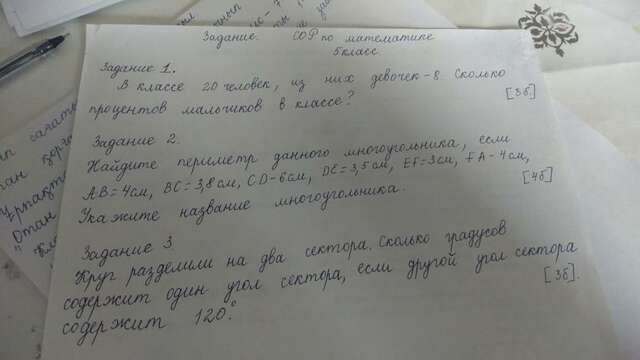 Задание. СОР по математике
5 класс
Задание 1.
В классе 20 человек, из них девочек-8. Сколько
процентов мальчиков в классе? [3б]
Задание 2.
Найдите периметр данного многоугольника, если
АВ=4см, ВС=3,8см, CD-6см, DE=3,5см, EF=3см, FA-4см,
Укажите название многоугольника. [4б]
Задание 3
Круг разделили на два сектора. Сколько градусов
содержит один угол сектора, если другой угол сектора
содержит 120°. [3б].